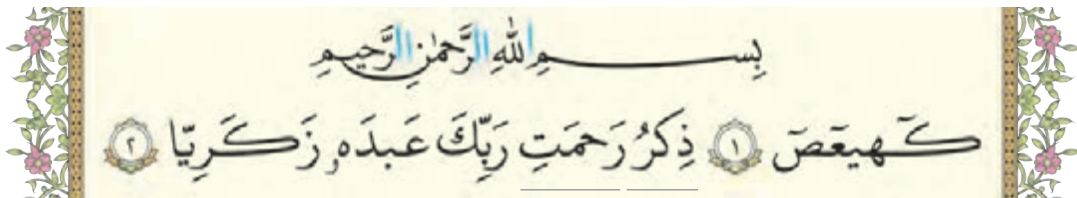 بِسمِ اللَّهِ الرَّحمٰنِ الرَّحيمِ
كهيعص ﴿١﴾ ذِكرُ رَحمَتِ رَبِّكَ عَبدَهُ زَكَرِيّا ﴿٢﴾